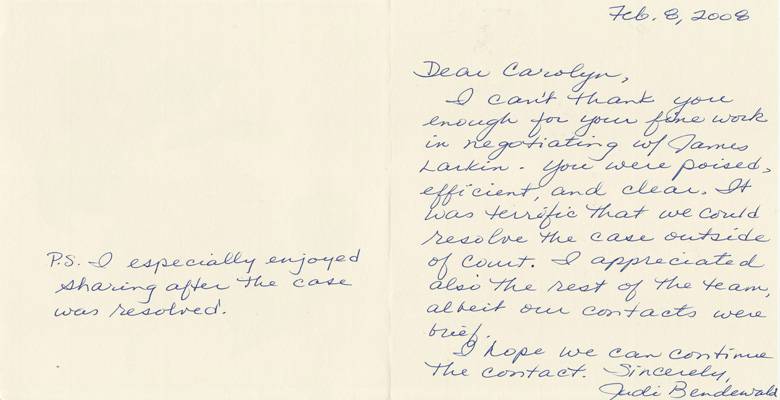 Feb. 8, 2008
Dear Carolyn,
I can't thank you
enough for your fine work
in negotiating w/ James
Larkin. You were poised,
efficient, and clear. It
was terrific that we could
resolve the case outside
of court. I appreciated
also the rest of the team,
albeit our contacts were
brief.
I hope we can continue
the contact. Sincerely,
Judi Bendewald
P.S. I especially enjoyed
sharing after the case
was resolved.